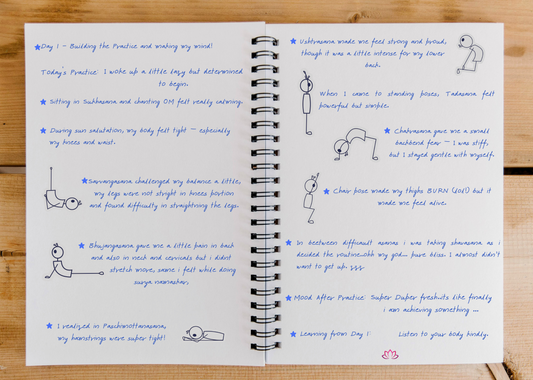 Day 1 - Building the Practice and making my mind!
Today's Practice: I woke up a little lazy but determined
to begin.
Sitting in Sukhasana and chanting OM felt really calming.
During sun salutation, my body felt tight - especially
my knees and waist.
Sarvangasana challenged my balance a little,
my legs were not stright in knees portion
and found difficulty in straightning the legs.
Bhujangasana gave me a little pain in back
and also in neck and cervicals but i didnt
stretch more, same i felt while doing
surya namaskar.
I realized in Paschimottanasana,
my hamstrings were super tight!
Ushtrasana made me feel strong and proud,
though it was a little intense for my lower
back.
When I came to standing poses, Tadasana felt
powerful but simple.
Chakrasana gave me a small
backbend fear - I was stiff,
but I stayed gentle with myself.
Chair pose made my thighs BURN (lol!) but it
made me feel alive.
In between difficult asanas i was taking shavasana as i
decided the routine..ohh my god... pure bliss. I almost didn't
want to get up.
Mood After Practice: Super Duper
i am achieving something ...
Learning from Day 1: Listen to your body kindly.